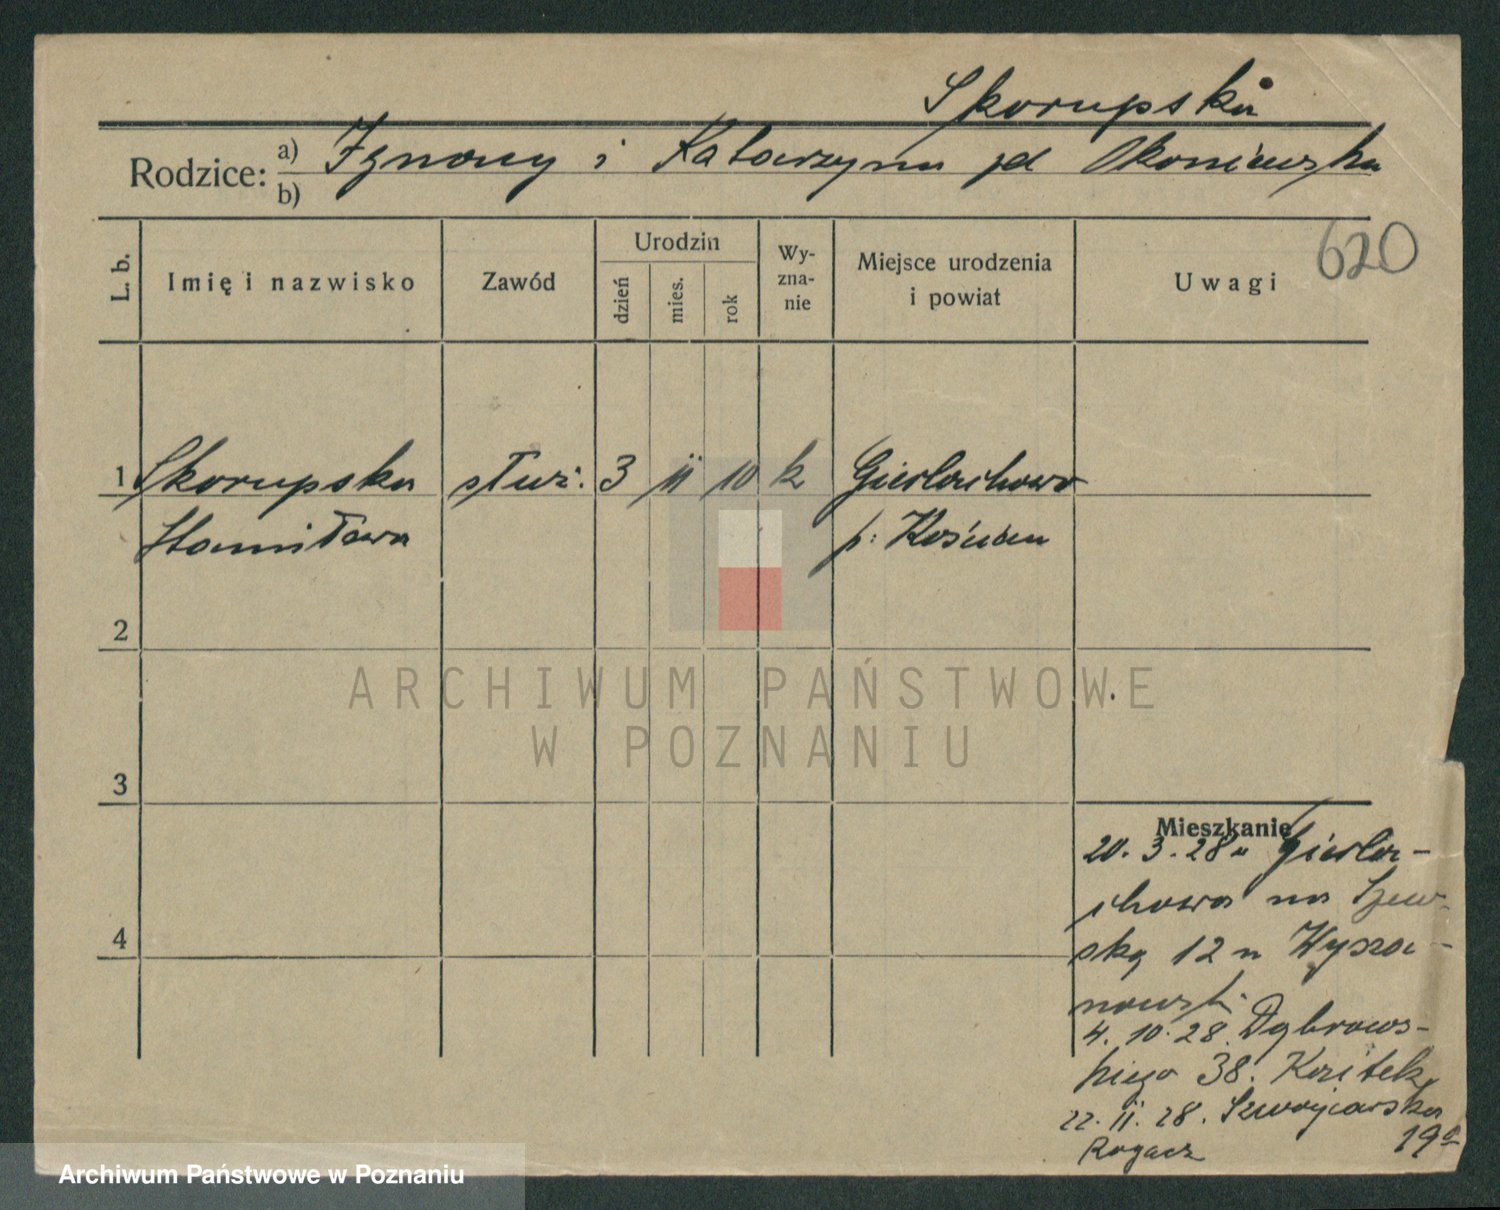 Skorupska
Rodzice: a) Ignacy i Katarzyna zd Okoniewska
b)
620
L. b.
Imię i nazwisko
Zawód
Urodzin
dzień
mies.
rok
Wy-
zna-
nie
Miejsce urodzenia
i powiat
Uwagi
1 Skorupska służ. 3 11 10 k Gierłachowo
Stanisława p. Kościan
2
3
4
ARCHIWUM PAŃSTWOWE
W POZNANIU
Mieszkanie
20. 3. 28 z Gierła-
chowa na Szew-
ską 12 u Wysza-
nowsk.
4. 10. 28. Dąbrows-
kiego 38.
22. 11. 28. Szwajcarska
Rogacz 19a
Archiwum Państwowe w Poznaniu